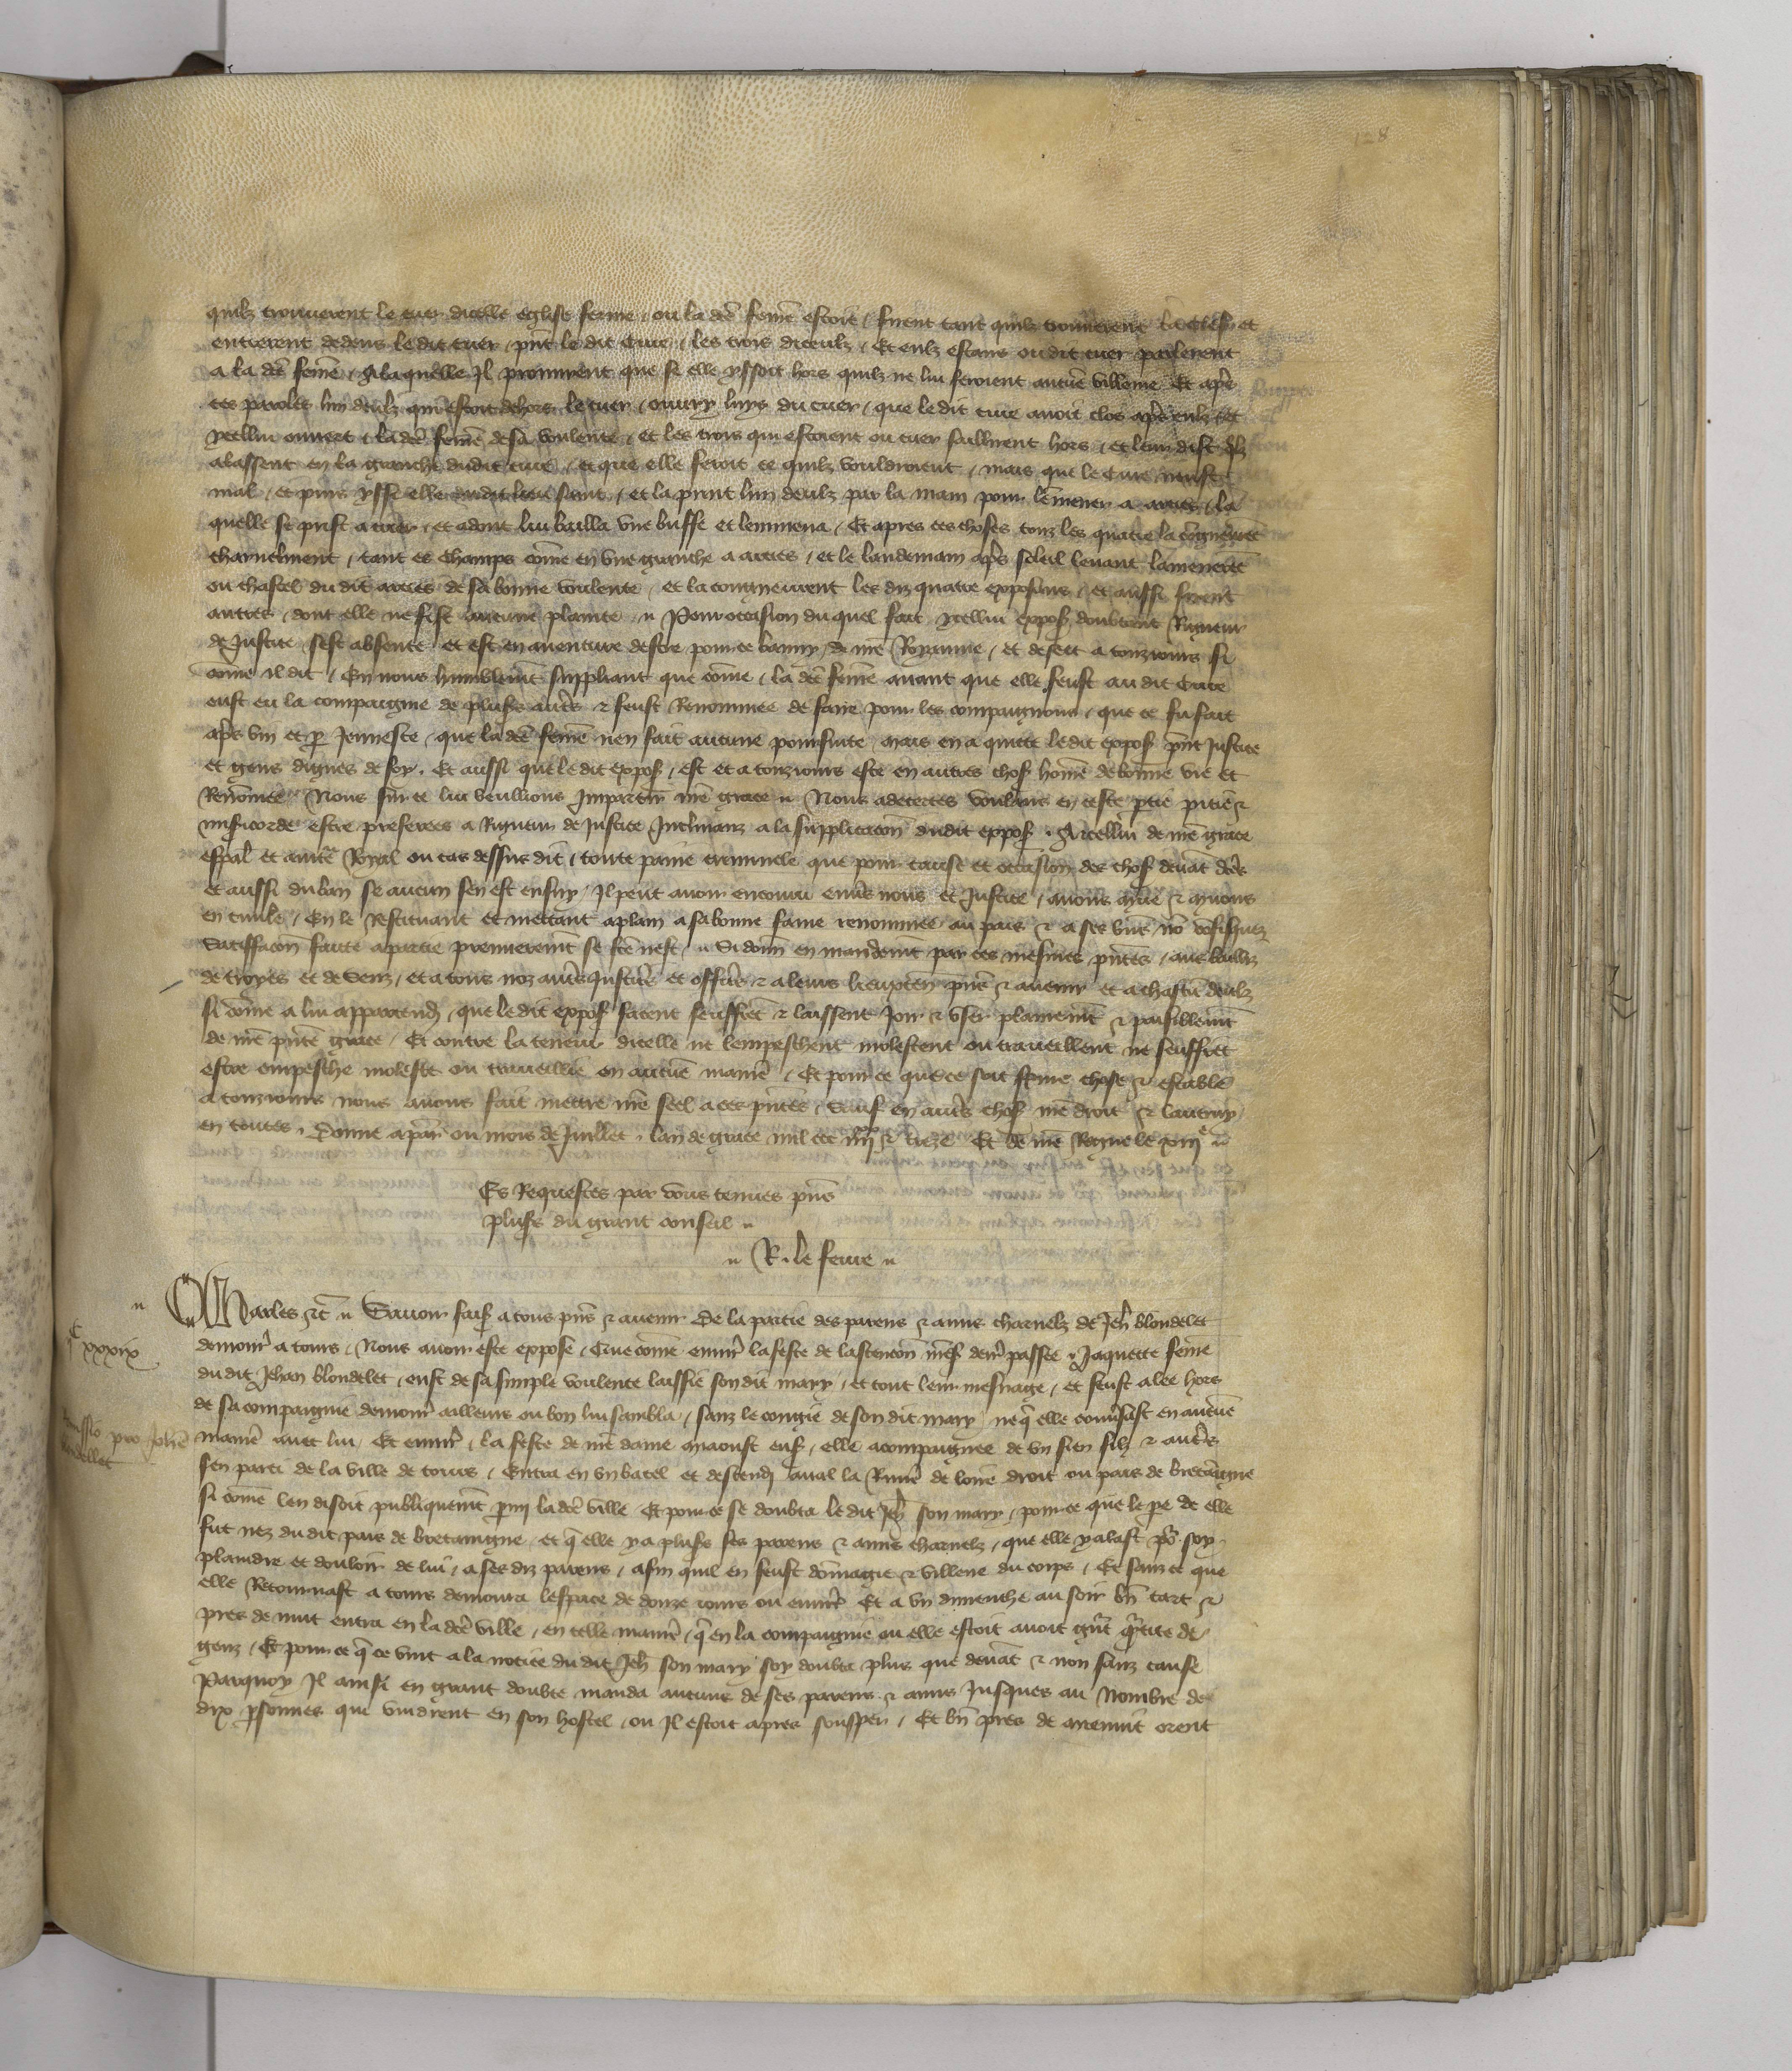 128
quilz trouuerent le cuer dicelle eglise ferme, ou la dce femme estoit, firent tant quilz trouuerent la clef et
entrerent dedens le dit cuer, pnt le dit Cure, les trois diceulz, Et eulz estans oudit cuer parlerent
a la dce feme, A laquelle Il promirent que se elle yssoit hors quilz ne lui feroient aucune villenie Et apres
ces paroles lun deulz qui estoit dehors le cuer, ouury luys du cuer, que le dit cure auoit clos apres eulz Et
ycellui ouuert, la dce feme de sa voulente, et les trois qui estoient ou cuer saillirent hors, et leur dist qlz
alassent en la granche dudit cure, et que elle feroit ce quilz vouldroient, mais que le Cure neust
mal, et puis yssi elle dudit lieu saint, et la print lun deulz par la main pour lemener a arcies, la
quelle se prist a crier, et adont lui bailla vne buffe et lemmena, Et apres ces choses touz les quatre la cogneurent
charnelment, tant es champs come en vne granche a arcies, et le landemain apres soleil leuant lamenerent
ou chastel du dit arcies de sa bonne voulente, et la congneurent les diz quatre exposans, et aussi firent
autres, dont elle ne fist aucune plainte. Pour occasion du quel fait ycellui expos doubtant Rigueur
de Justice sest absente et est en auenture destre pour ce banny de nre Royaume, et desert a touzjours si
come il dit, En nous humblemt suppliant que come, la dce feme auant que elle feust au dit Cure
eust eu la compaignie de pluss autres & feust Renommee de faire pour les compaignons, que ce fu fait
apres vin et p Jeunesce, que la dce feme nen fait aucune poursuite, mais en a quitte le dit expos pnt Justice
et gens dignes de foy. Et aussi que le dit expos, est et a touzjours este en autres chos home de bonne vie et
Renomee Nous sur ce lui veuillions Impartir nre grace Nous adecertes voulans en ceste ptie pitie &
misericorde estre preferees a Rigueur de Justice Inclinanz a la supplicacon dudit expos. A icellui de nre grace
espal et aucte Royal ou cas dessus dit, toute paine criminele que pour cause et occasion des chos deuat dces
et aussi du ban se aucun sen est ensuy, Il peut auoir encouru enuers nous et Justice, auons mue & muons
en ciuile, En le restituant et mettant aplain a sa bonne fame renommee au pais & a ses biens no cofisquez
Satisfacon faite a partie premieremt se fce nest. Si donn en mandemt par ces mesmes pntes, aus bailliz
de troyes et de Senz, et a tous noz autres Justiciers et officiers & a leurs lieuxten pns & auenir et a chascun deulz
si come a lui appartiend, que le dit expos facent seuffrent & laissent Joir & vser plainemt & paisiblemt
de nre pnte grace, Et contre la teneur dicelle ne lempeschent molestent ou trauaillent ne seuffret
estre empesche moleste ou trauaillie en aucune maniere, Et pour ce que ce soit ferme chose & estable
a touzjours nous auons fait mettre nre seel a ces pntes, Sauf en autres chos nre droit & lautruy
en toutes. Donne a paris ou mois de Juillet. lan de grace mil ccc iiiixx & treze Et de nre Regne le xiije
Es Requestes par vous tenues pns
pluss du grant conseil
R. le feure
Charles &c. Sauoir fais a tous pns & auenir De la partie des parens & amis charnelz de Jeh blondelet
demour a tours, Nous auoir este expose, Que come enuir la feste de lascencion nres derr passee. Jaquette feme
du dit Jehan blondelet, eust de sa simple voulente laissie son dit mary, et tout leur mesnage, et feust alee hors
de sa compaignie demour ailleurs ou bon lui sambla, sanz le congie de son dit mary ne q elle conuersast en aucune
maniere auec lui, Et enuir, la feste de nre dame mi aoust ens, elle acompaignee de vn sien filz & autres
sen parti de la ville de tours, Entra en vn batel et descendi aual la Riuiere de loire droit ou pais de bretaigne
si come len disoit publiquemt parmi la dce ville Et pour ce se doubta le dit Jeh son mary, pour ce que le pe de elle
fut nez du dit pais de bretaigne, et q elle y a pluss ses parens & amis charnelz, que elle y alast po soy
plaindre et douloir de lui, a ses diz parens, afin quil en feust domagie & villene du corps, Et sanz ce que
elle Retournast a tours demoura lespace de douze jours ou enuir Et a vn dimenche au soir bn tart &
pres de nuit entra en la dce ville, en telle maniere, q en la compaignie ou elle estoit auoit grat qtite de
genz, Et pour ce q ce vint a la notice du dit Jeh son mary soy doubta plus que deuat & non sanz cause
Parquoy Il ainsi en grant doubte manda aucuns de ses parens & amis Jusques au Nombre de
dix psonnes qui vindrent en son hostel, ou Il estoit apres souper, Et bn pres de mienuit orent
C
xxxix
Remissio pro Johe
blondellet